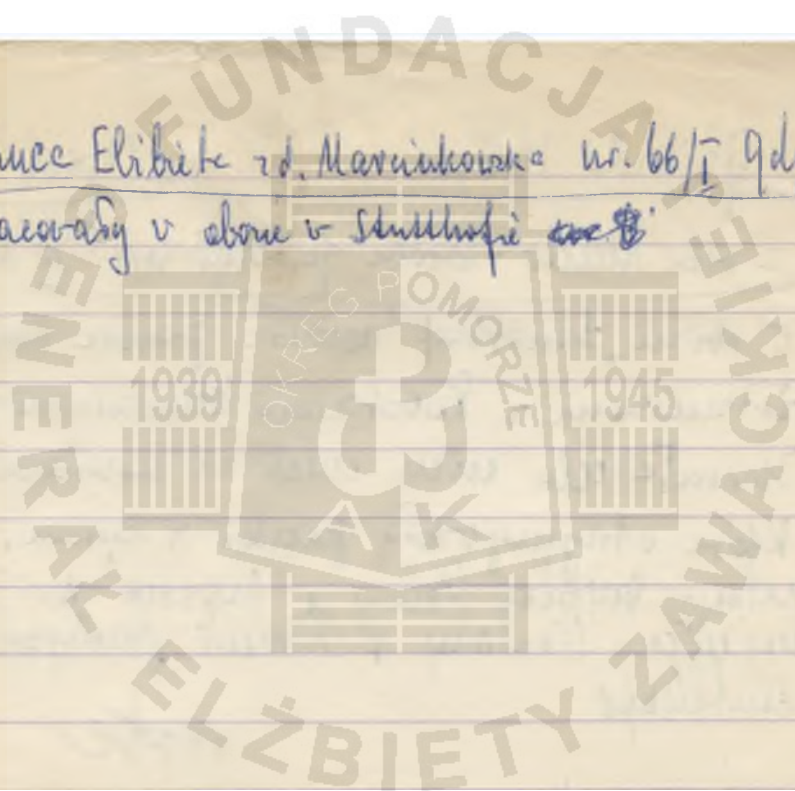 Elżbieta zd. Marcinkowska nr. 66/I
w obozie w Stutthofie
FUNDACJA
GENERAŁ ELŻBIETY ZAWACKIEJ
OKRĘG POMORZE
1939
1945
AK